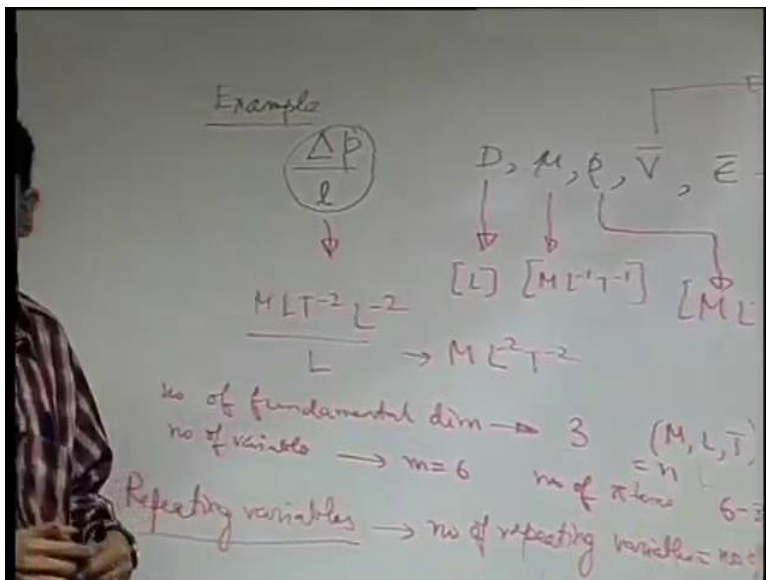 Example
Δp
l
D, μ, ρ, V̄, ε̄
[L] [ML⁻¹T⁻¹] [ML
MLT⁻² L⁻²
L → ML⁻²T⁻²
no of fundamental dim → 3 (M, L, T)
= n
no of variable → m = 6 no of π terms 6-3
Repeating variables → no of repeating variables = no of